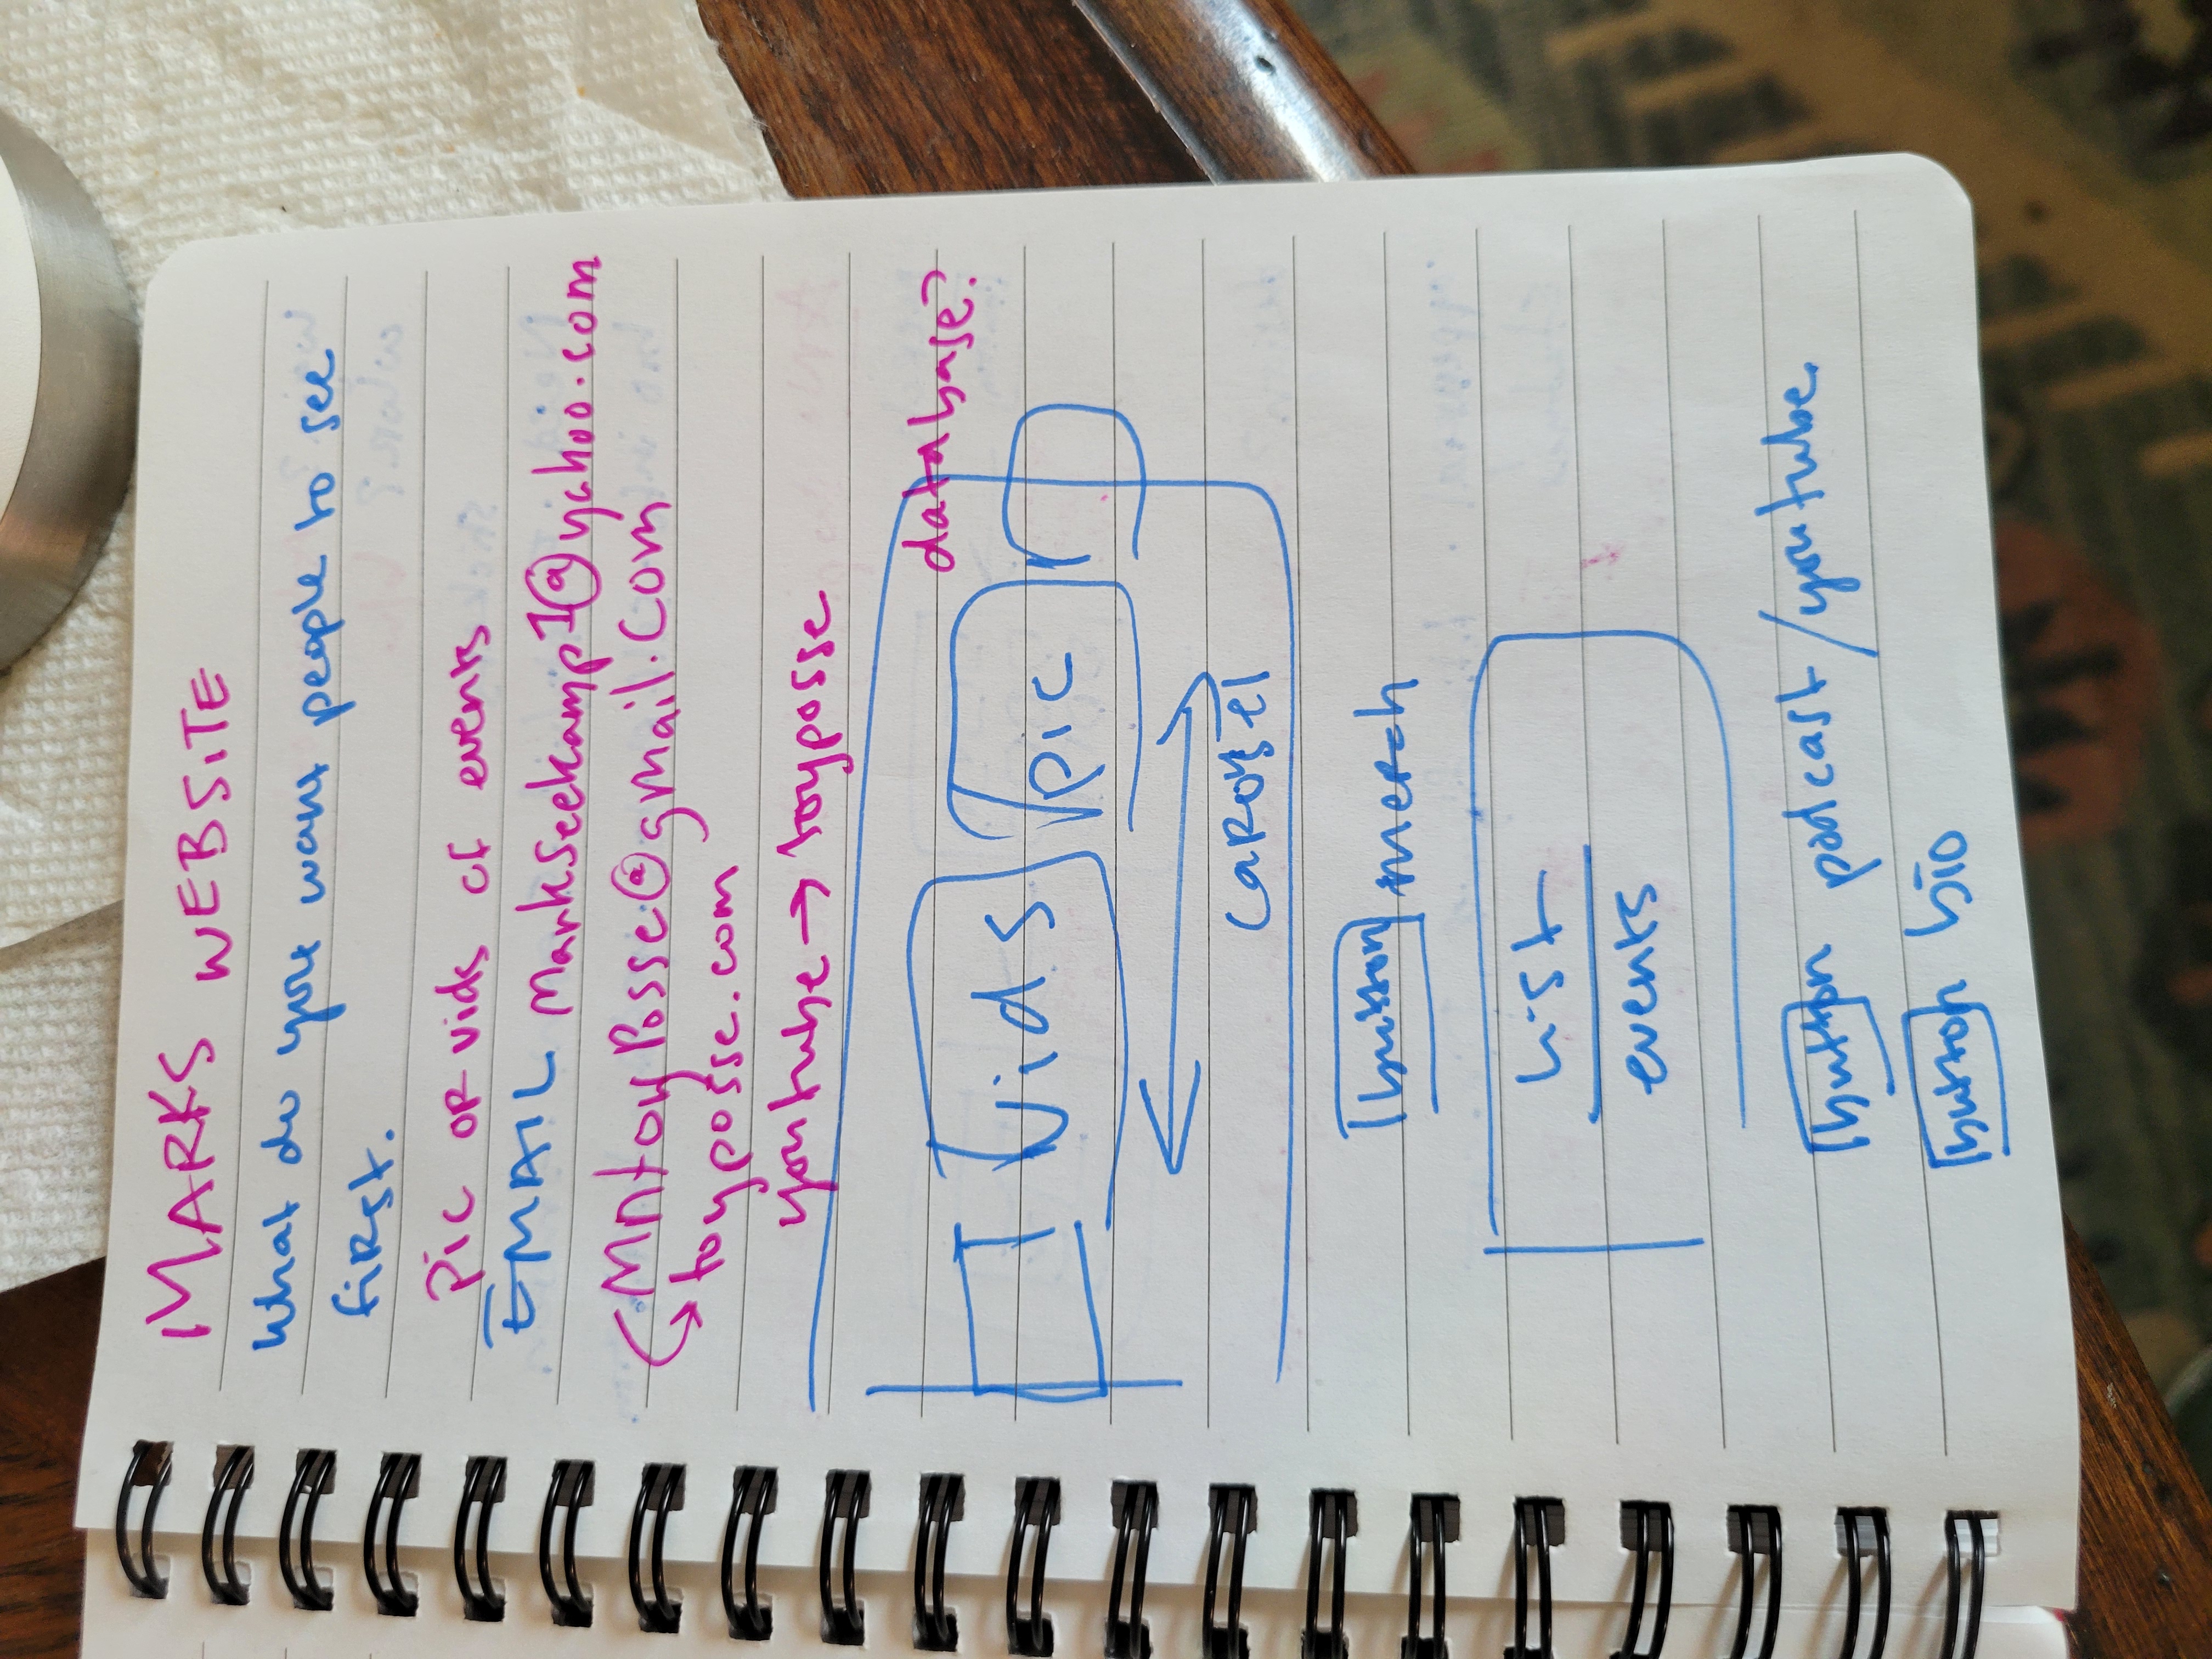 MARKS WEBSITE
What do you want people to see
first.
Pic or vids of events
EMAIL markseekamp1@yahoo.com
MntoyPosse@gmail.com
toyposse.com
youtube → toyposse
database?
vids pic
carousel
button merch
List
events
button podcast/youtube
button bio